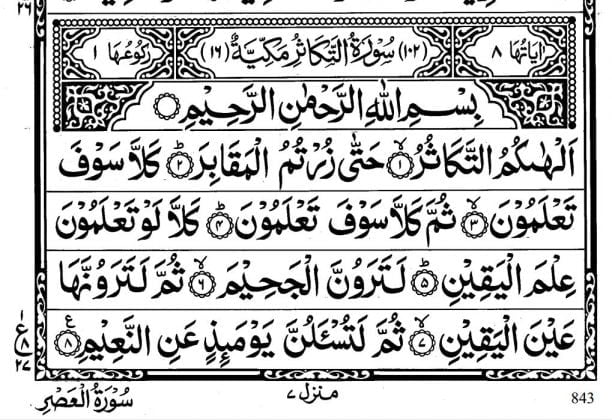 ٢٦
اٰيَاتُهَا ٨ (١٠٢) سُوْرَةُ التَّكَاثُرِ مَكِّيَّةٌ (١٦) رُكُوْعُهَا ١
بِسْمِ اللّٰهِ الرَّحْمٰنِ الرَّحِيْمِ
اَلْهٰىكُمُ التَّكَاثُرُۙ ١ حَتّٰى زُرْتُمُ الْمَقَابِرَؕ ٢ كَلَّا سَوْفَ
تَعْلَمُوْنَۙ ٣ ثُمَّ كَلَّا سَوْفَ تَعْلَمُوْنَؕ ٤ كَلَّا لَوْ تَعْلَمُوْنَ
عِلْمَ الْيَقِيْنِؕ ٥ لَتَرَوُنَّ الْجَحِيْمَۙ ٦ ثُمَّ لَتَرَوُنَّهَا
عَيْنَ الْيَقِيْنِۙ ٧ ثُمَّ لَتُسْـَٔلُنَّ يَوْمَئِذٍ عَنِ النَّعِيْمِ ٨ ع
١
ع
٨
٢٧
843 منزل ٧ سُوْرَةُ الْعَصْرِ